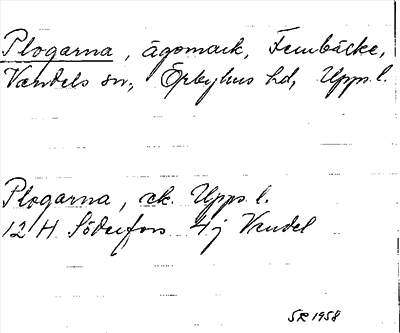 Plogarna, ägomark, Fembäcke,
Vendels sn, Örbyhus hd, Upps. l.
Plogarna, ek. Upps. l.
12 H Söderfors 4 j Vendel
SR 1958